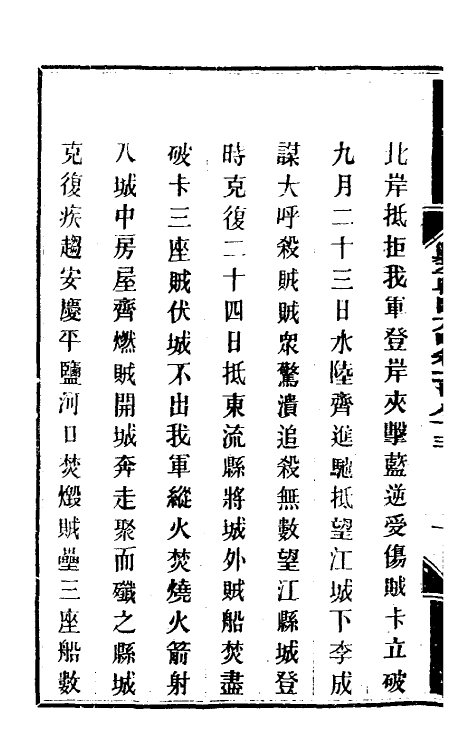 北岸抵拒我軍登岸夾擊藍逆受傷賊卡立破
九月二十三日水陸齊進馳抵望江城下李成
謀大呼殺賊賊眾驚潰追殺無數望江縣城登
時克復二十四日抵東流縣將城外賊船焚盡
破卡三座賊伏城不出我軍縱火焚燒火箭射
入城中房屋齊燃賊開城奔走聚而殲之縣城
克復疾趨安慶平鹽河口焚燬賊壘三座船數